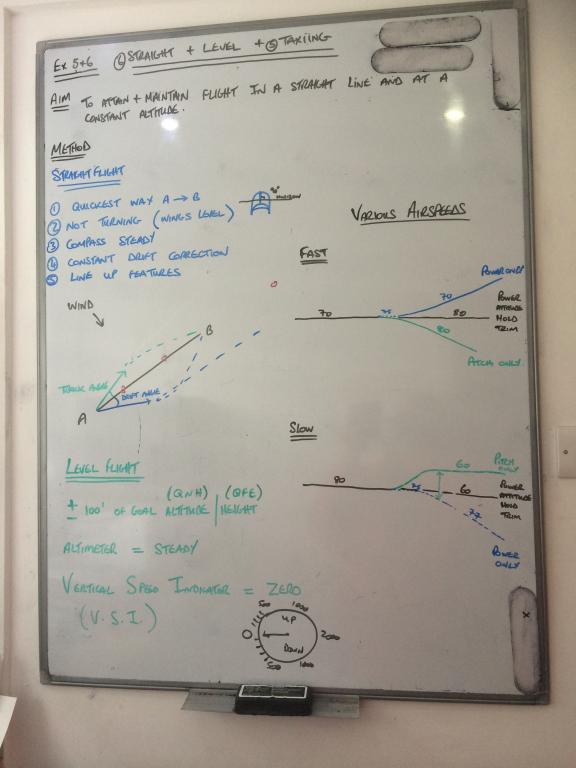 Ex 5+6 ⑥ STRAIGHT + LEVEL + ⑤ TAXIING
AIM TO ATTAIN + MAINTAIN FLIGHT IN A STRAIGHT LINE AND AT A
CONSTANT ALTITUDE.
METHOD
STRAIGHT FLIGHT
① QUICKEST WAY A → B
② NOT TURNING (WINGS LEVEL)
③ COMPASS STEADY
④ CONSTANT DRIFT CORRECTION
⑤ LINE UP FEATURES
HORIZON
WIND
B
TRACK ANGLE
DRIFT ANGLE
A
LEVEL FLIGHT
(QNH) (QFE)
± 100' OF GOAL ALTITUDE | HEIGHT
ALTIMETER = STEADY
VERTICAL SPEED INDICATOR = ZERO
(V.S.I.)
500 1000
UP
0 2000
DOWN
500 1000
VARIOUS AIRSPEEDS
FAST
POWER ONLY
70
70 75 80
80
POWER
ATTITUDE
HOLD
TRIM
PITCH ONLY
SLOW
PITCH
ONLY
60
80 75 60
POWER
ATTITUDE
HOLD
TRIM
POWER
ONLY
x